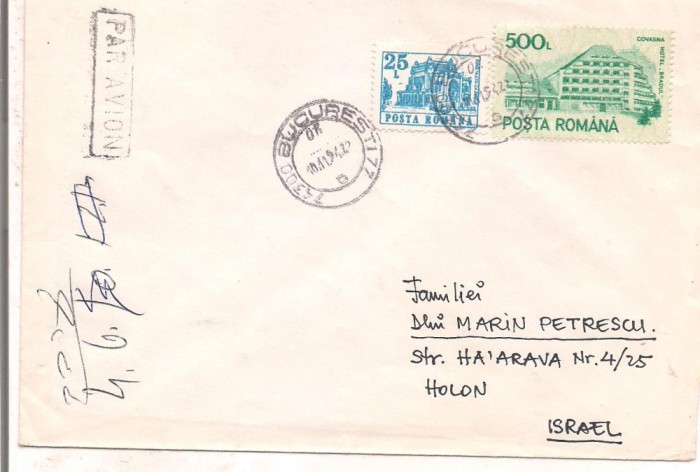 PAR AVION
25 L
POSTA ROMANA
500L
COVASNA
HOTEL "BRADUL"
POSTA ROMÂNĂ
74300 BUCURESTI 77
Familiei
Dlui MARIN PETRESCU.
Str. HA'ARAVA Nr. 4/25
HOLON
ISRAEL